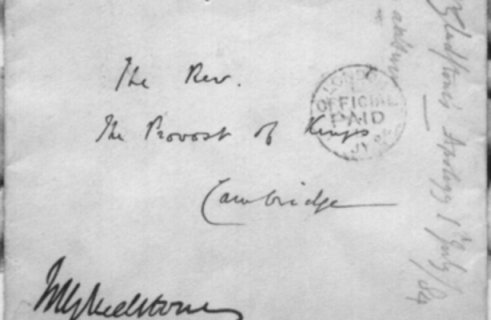 The Rev.
The Provost of Kings
Cambridge
LONDON
OFFICIAL
PAID
JY
WEGladstone
Gladstone's Apology 1st July/84
address